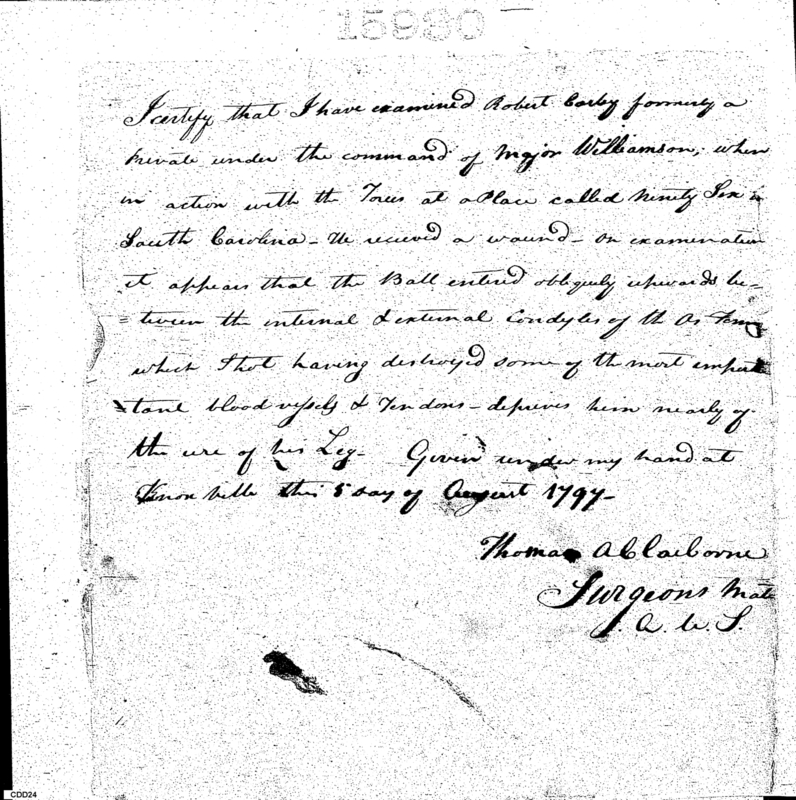 15930
I certify that I have examined Robert Carby formerly a
Private under the command of Major Williamson; when
in action with the Tories at a Place called Ninety Six in
South Carolina - He recieved a wound - On examination
it appears that the Ball entered obliquely upwards be-
=tween the internal & external Condyles of th Os Fem
which Shot having destroyed some of the most import
tant blood vessels & Tendons - deprives him nearly of
the use of his Leg - Given under my hand at
Knoxville this 5 day of August 1797 -
Thomas A Claiborne
Surgeons Mate
A. U. S.
CDD24